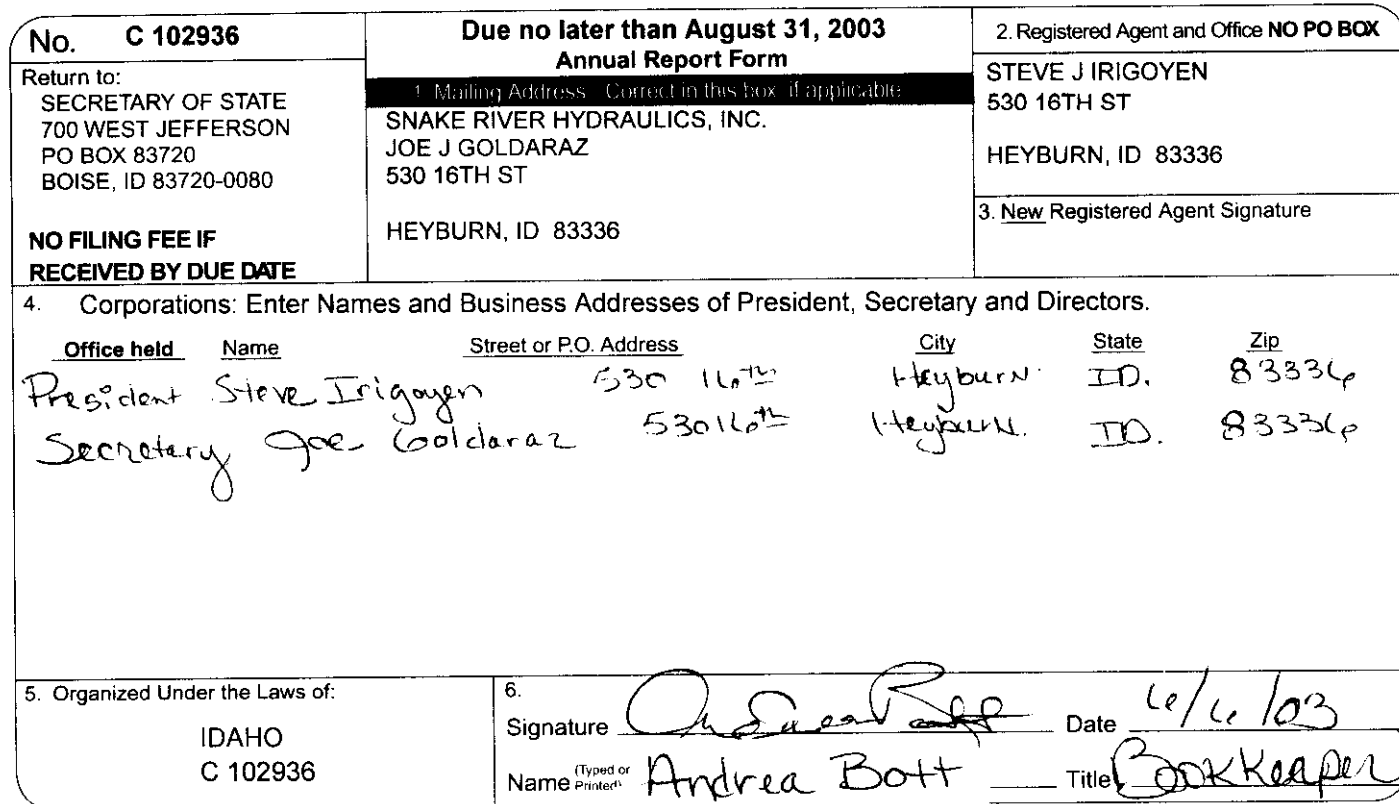 No. C 102936
Return to:
SECRETARY OF STATE
700 WEST JEFFERSON
PO BOX 83720
BOISE, ID 83720-0080
NO FILING FEE IF
RECEIVED BY DUE DATE
Due no later than August 31, 2003
Annual Report Form
1. Mailing Address. Correct in this box, if applicable
SNAKE RIVER HYDRAULICS, INC.
JOE J GOLDARAZ
530 16TH ST
HEYBURN, ID 83336
2. Registered Agent and Office NO PO BOX
STEVE J IRIGOYEN
530 16TH ST
HEYBURN, ID 83336
3. New Registered Agent Signature
4. Corporations: Enter Names and Business Addresses of President, Secretary and Directors.
Office held Name Street or P.O. Address City State Zip
President Steve Irigoyen 530 16th Heyburn. ID. 83336
Secretary Joe Goldaraz 530 16th Heyburn. ID. 83336
5. Organized Under the Laws of:
IDAHO
C 102936
6.
Signature Andrea Bott Date 6/6/03
Name (Typed or Printed) Andrea Bott Title Bookkeeper